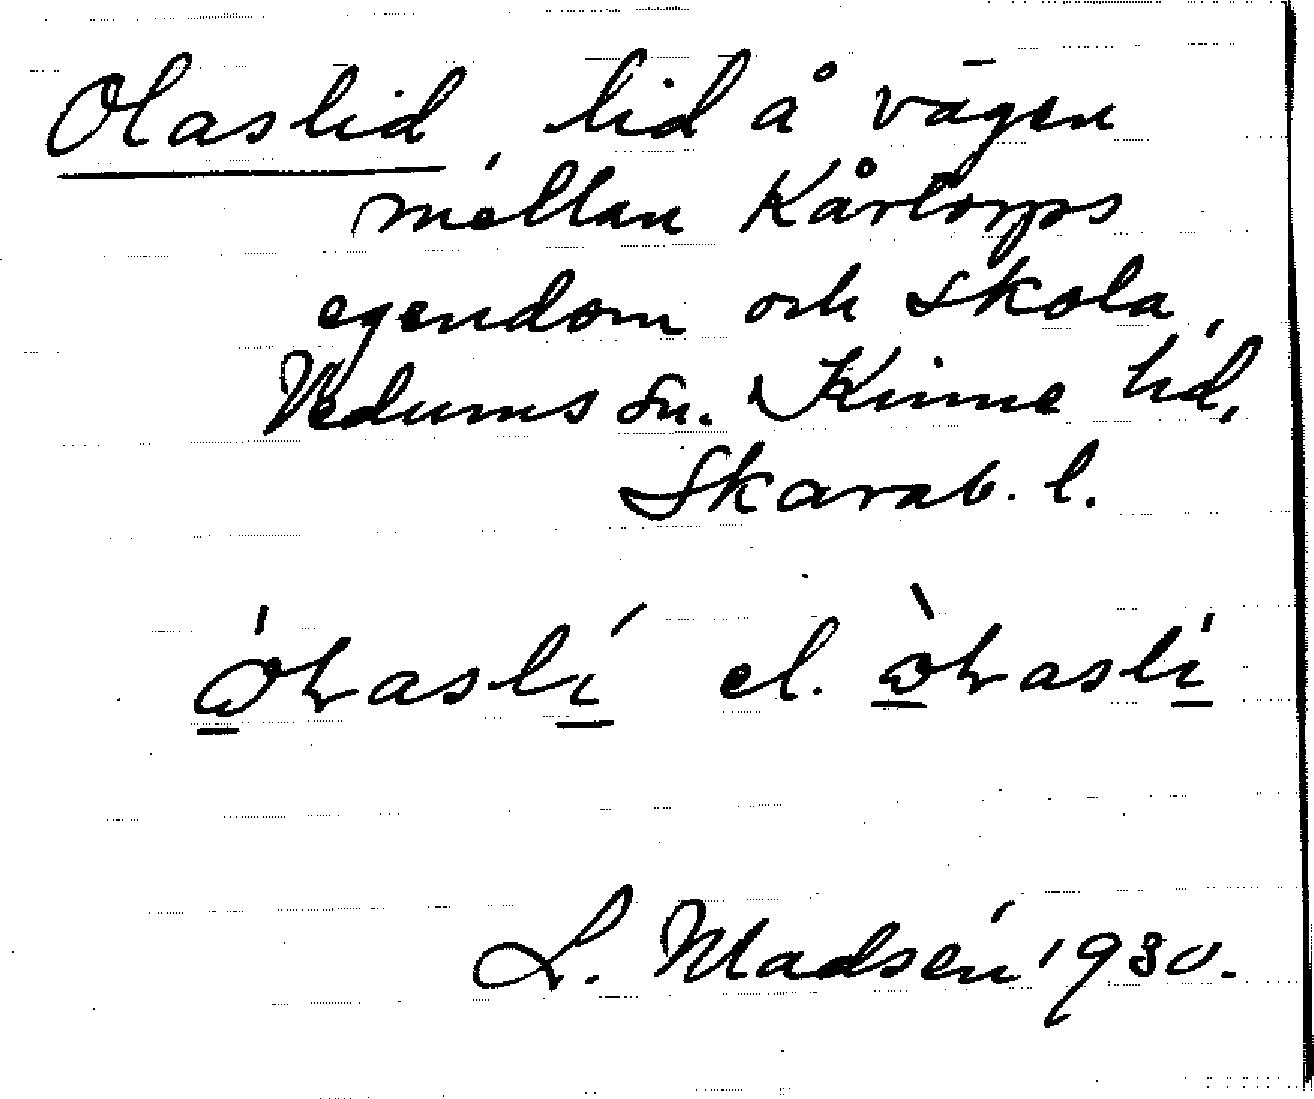 Olaslid, lid å vägen
mellan Kårtorps
egendom och skola,
Vedums sn. Kinne hd,
Skarab. l.
el.
L. Madsén 1930.